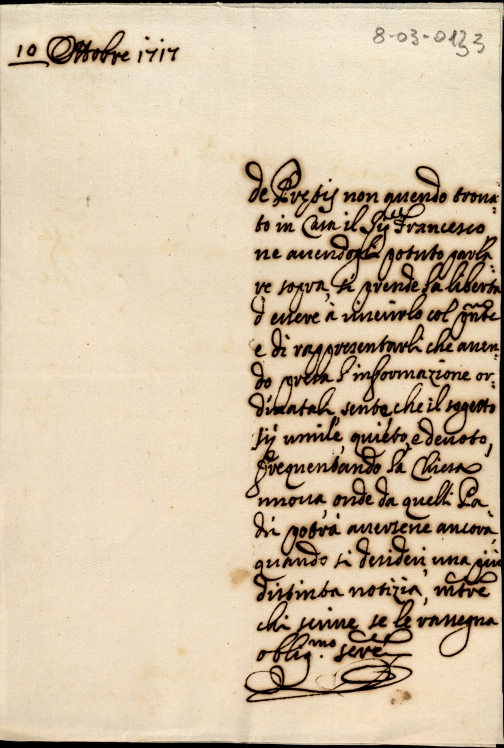 8-03-0133
10 Ottobre 1717
de Pretis non avendo trova-
to in Casa il Sig.r Francesco
ne avendogli potuto parla-
re sopra, si prende la libertà
d'essere à riverirlo col pñte
e di rappresentarli che aven-
do presa l'informazione or-
dinatali, sente che il sogetto
sij umile, quieto, e devoto,
frequentando la Chiesa
nuova, onde da quelli Pa-
dri potrà aversene ancora,
quando si desideri una più
distinta notizia, mẽtre
chi scrive se le rassegna
oblig.mo ser.re